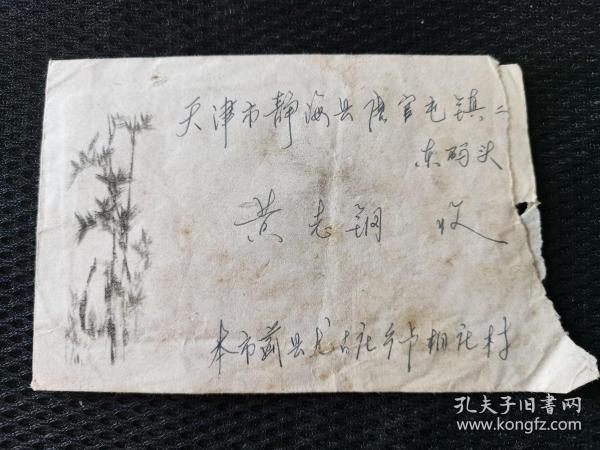 天津市静海县唐官屯镇二
东码头
黄志钢 收
本市蓟县尤古庄乡卢相社村
孔夫子旧書网
www.kongfz.com